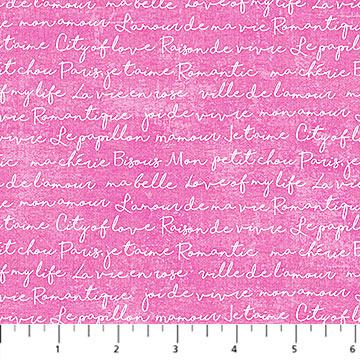 mon amour L'amour de ma vie mon amour
t'aime City of love Raison de vivre Le pap
tit chou Paris, je t'aime Romantic ma chérie
of my life La vie en rose ville de l'amour m
vie Romantique joi de vivre mon amour
vivre Le papillon mamour Je t'aime City of
ic ma chérie Bisous Mon petit chou Paris, je
de l'amour ma belle Love of my life La vie en
n amour L'amour de ma vie Romantiqu
t'aime City of love Raison de vivre Le papi
tit chou Paris, je t'aime Romantic ma chérie
of my life La vie en rose ville de l'amour m
vie Romantique joi de vivre mon amour
vivre Le papillon mamour Je t'aime City of
1 2 3 4 5 6